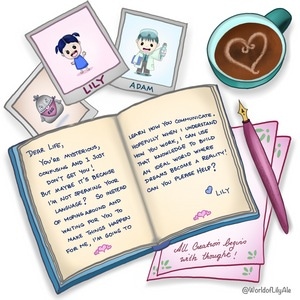 LILY
ADAM
DEAR LIFE,
YOU'RE MYSTERIOUS,
CONFUSING AND I JUST
DON'T GET YOU!
BUT MAYBE IT'S BECAUSE
I'M NOT SPEAKING YOUR
LANGUAGE? SO INSTEAD
OF MOPING AROUND AND
WAITING FOR YOU TO
MAKE THINGS HAPPEN
FOR ME, I'M GOING TO
LEARN HOW YOU COMMUNICATE.
HOPEFULLY WHEN I UNDERSTAND
HOW YOU WORK, I CAN USE
THAT KNOWLEDGE TO BUILD
AN IDEAL WORLD WHERE
DREAMS BECOME A REALITY!
CAN YOU PLEASE HELP?
LILY
All Creation begins
with thought!
@WorldofLilyAle